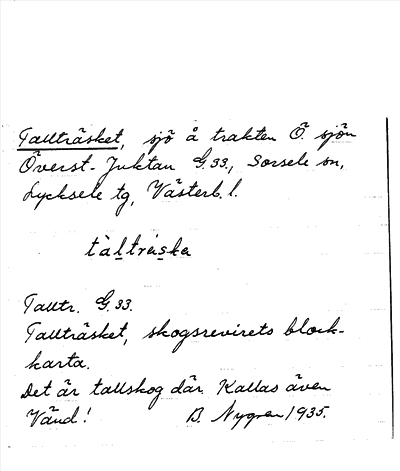 Tallträsket, sjö å trakten Ö. sjön
Överst-Juktan G.33., Sorsele sn,
Lycksele tg, Västerb. l.
tàl̲trä́s̲ka
Talltr. G.33.
Tallträsket, skogsrevirets block-
karta.
Det är tallskog där. Kallas även
Vänd! B. Nygren 1935.